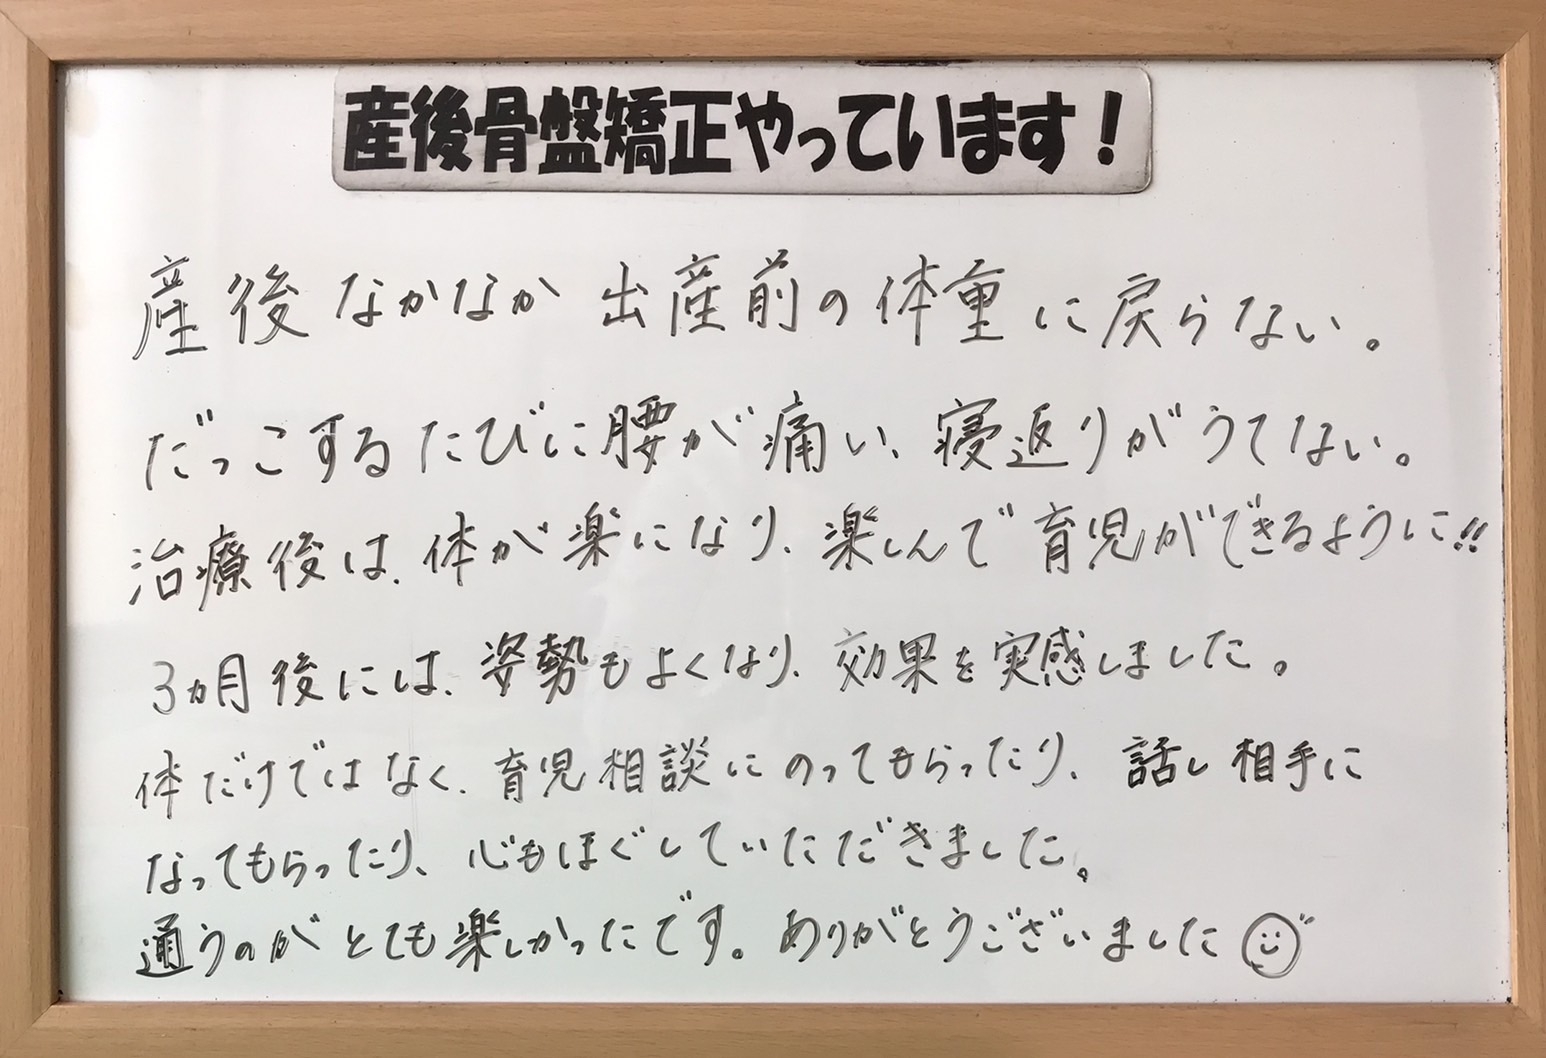 産後骨盤矯正やっています！
産後なかなか出産前の体重に戻らない。
だっこするたびに腰が痛い、寝返りがうてない。
治療後は、体が楽になり、楽しんで育児ができるように!!
3ヵ月後には、姿勢もよくなり、効果を実感しました。
体だけではなく、育児相談にのってもらったり、話し相手に
なってもらったり、心もほぐしていただきました。
通うのがとても楽しかったです。ありがとうございました